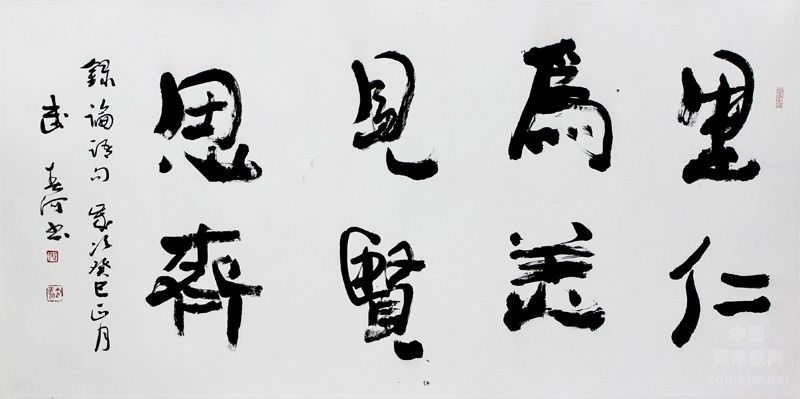 里仁
為美
見賢
思齊
錄論語句 歲次癸巳正月
武春河书
中国
美术家网
zgmsjw.net